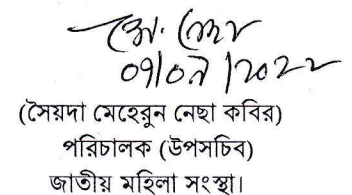 ০৭/০৮/২০২২
(সৈয়দা মেহেরুন নেছা কবির)
পরিচালক (উপসচিব)
জাতীয় মহিলা সংস্থা।